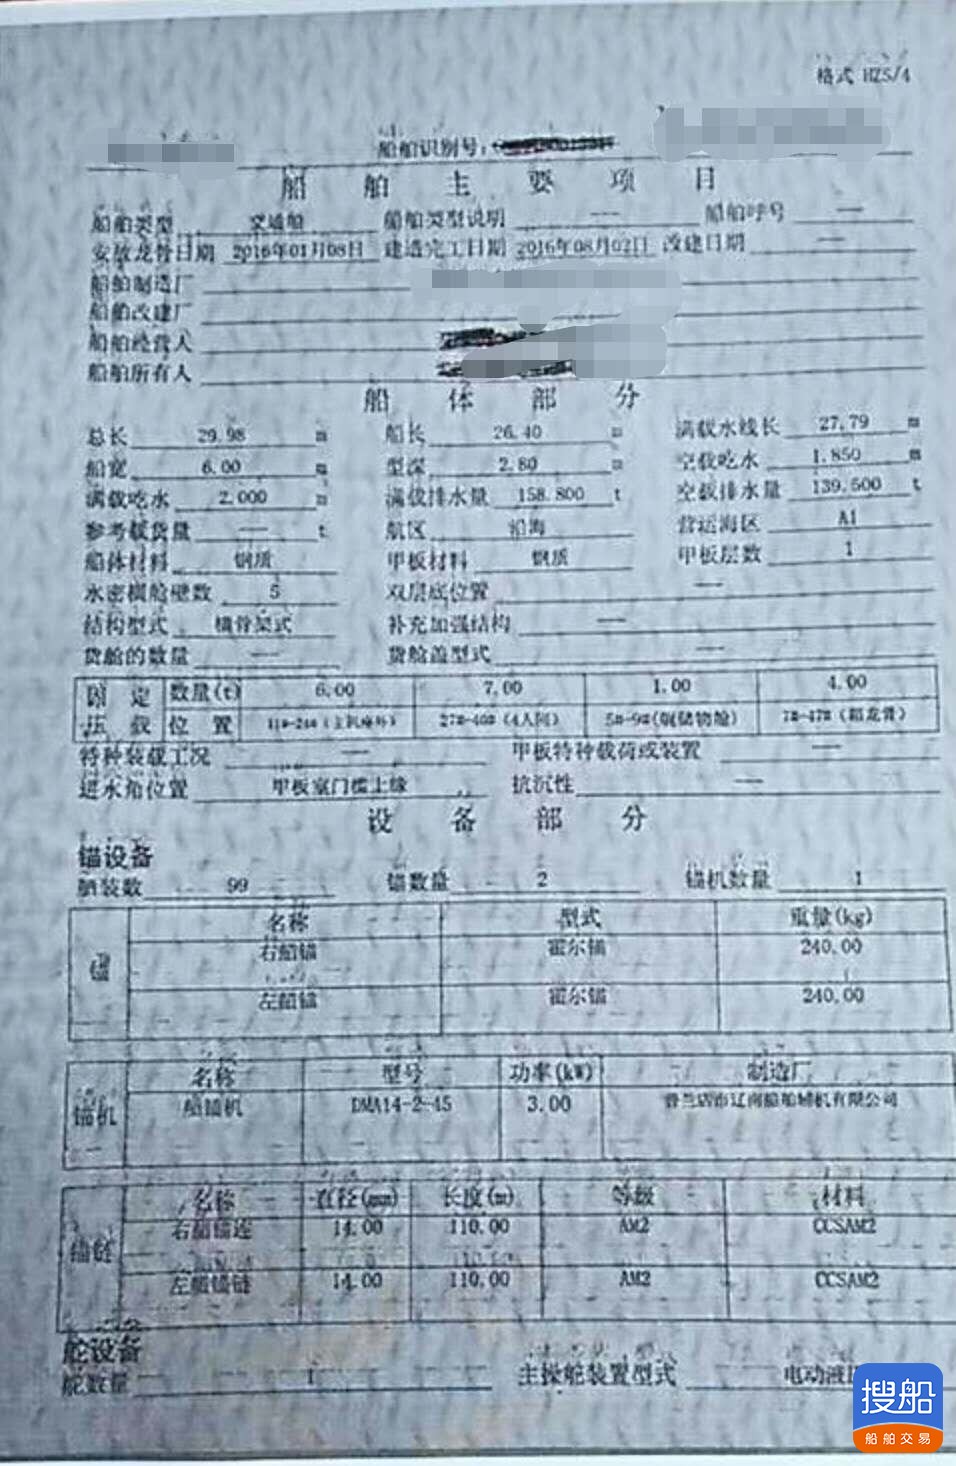 格式 HZS/4
船舶识别号:
船 舶 主 要 项 目
船舶类型 交通船 船舶类型说明 — 船舶呼号 —
安放龙骨日期 2016年01月08日 建造完工日期 2016年08月02日 改建日期 —
船舶制造厂
船舶改建厂
船舶经营人
船舶所有人
船 体 部 分
总长 29.98 m 船长 26.40 m 满载水线长 27.79 m
船宽 6.00 m 型深 2.80 m 空载吃水 1.850 m
满载吃水 2.000 m 满载排水量 158.800 t 空载排水量 139.500 t
参考载货量 — t 航区 沿海 营运海区 A1
船体材料 钢质 甲板材料 钢质 甲板层数 1
水密横舱壁数 5 双层底位置 —
结构型式 横骨架式 补充加强结构 —
货舱的数量 — 货舱盖型式 —
固 定 数量(t) 6.00 7.00 1.00 4.00
压 载 位 置 11#-24#(主机座外) 27#-40#(4人间) 5#-9#(舾储物舱) 7#-47#(箱龙骨)
特种装载工况 — 甲板特种载荷或装置 —
进水角位置 甲板室门槛上缘 抗沉性 —
设 备 部 分
锚设备
舾装数 99 锚数量 2 锚机数量 1
名称 型式 重量(kg)
锚 右艏锚 霍尔锚 240.00
左艏锚 霍尔锚 240.00
名称 型号 功率(kW) 制造厂
锚机 艏锚机 DMA14-2-45 3.00 普兰店市辽南船舶辅机有限公司
名称 直径(mm) 长度(m) 等级 材料
锚链 右艏锚链 14.00 110.00 AM2 CCSAM2
左艏锚链 14.00 110.00 AM2 CCSAM2
舵设备
舵数量 1 主操舵装置型式 电动液
搜船
船舶交易